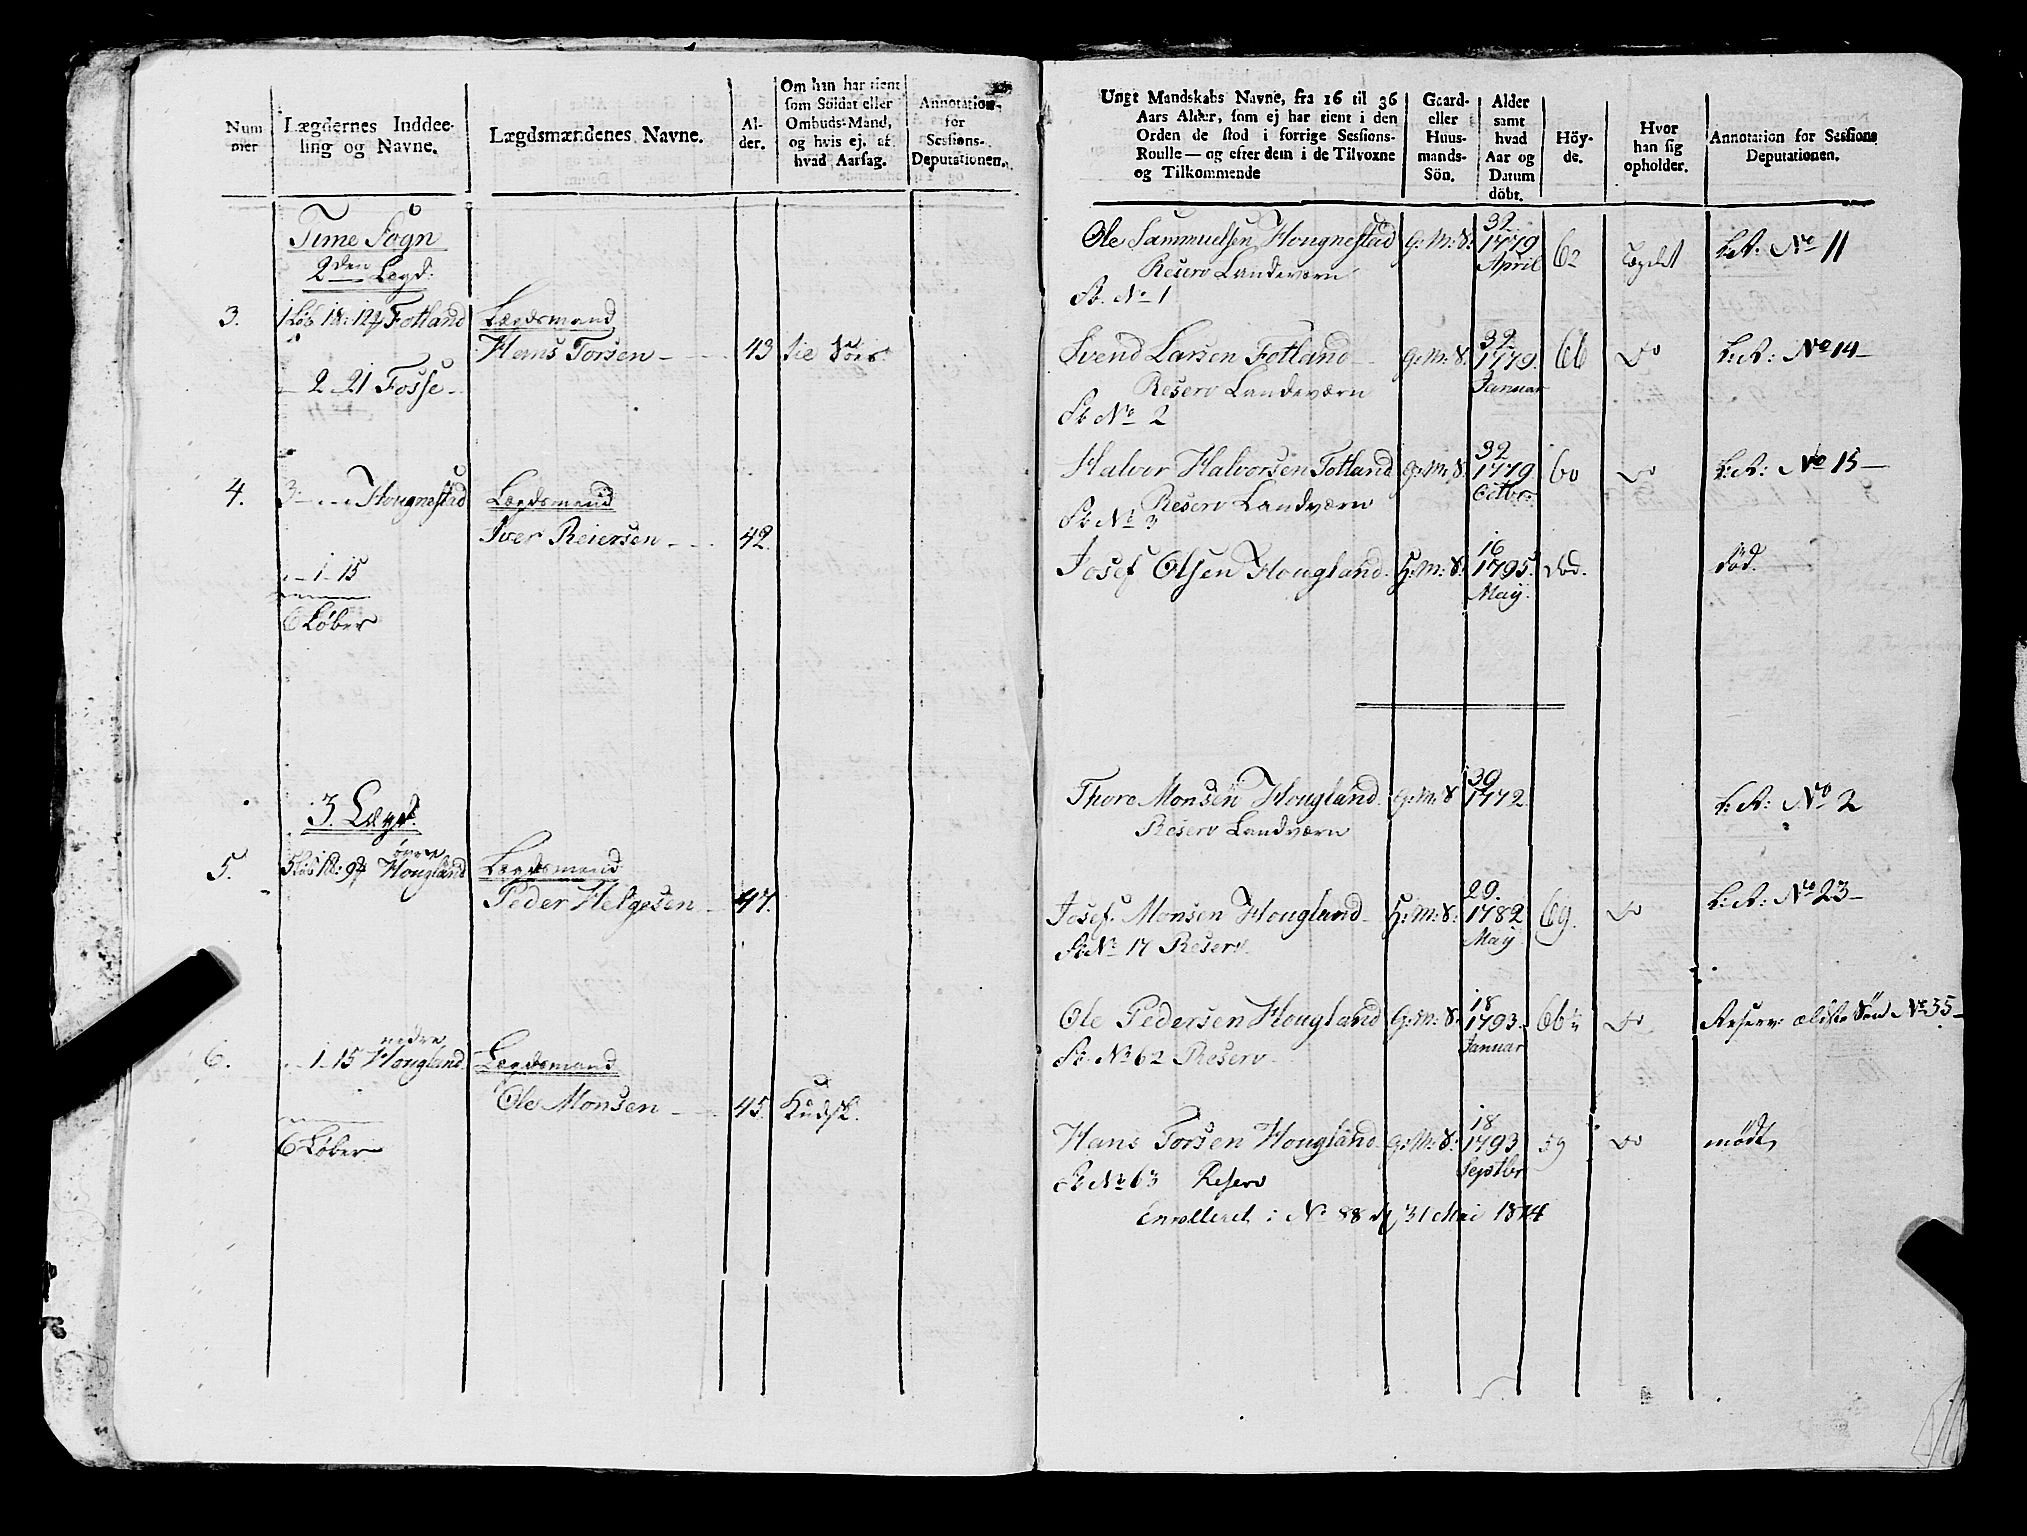 Num
mer
Lægdernes Inddee-
ling og Navne.
Lægdsmændenes Navne.
Al-
der.
Om han har tient
som Soldat eller
Ombuds-Mand,
og hvis ej, af
hvad Aarsag.
Annotation
for
Sessions-
Deputationen.
Time Sogn
2den Lægd.
3.
Fotland
Lægdsmand
Hans Torsen
43
2 21 Fosse
4.
3 Hougnestad
Lægdsmand
Iver Reiersen
42
1 15
6 Løber
3 Lægd.
5.
øvre
Hougland
Lægdsmand
Peder Helgesen
47.
6.
nedre
1 15 Hougland
Lægdsmand
Ole Monsen
45.
Kudsk.
6 Løber
Ungt Mandskabs Navne, fra 16 til 36
Aars Alder, som ej har tient i den
Orden de stod i forrige Sessions-
Roulle — og efter dem i de Tilvoxne
og Tilkommende
Gaard-
eller
Huus-
mands-
Sön.
Alder
samt
hvad
Aar og
Datum
döbt.
Höy-
de.
Hvor
han sig
opholder.
Annotation for Sessions
Deputationen.
32
Ole Sammuelsen Hougnestad G:M:S: 1779 62 No 11
Reserv Landeværn April
No 1
32
Svend Larsen Fotland G:M:S. 1779. 66 Do No 14
Reserv Landeværn Januar
No 2
32
Halvor Halvorsen Fotland G:M:S. 1779 60 Do No 15
Reserv Landværn Octbr.
No 3
16
Josef Olsen Hougland H:M:S: 1795. død. død.
May
39
Thore Monsen Hougland G:M:S 1772. No 2
Reserv Landværn
29.
Josef Monsen Hougland H:M:S: 1782 69. Do No 23
May
No 17 Reserv
18
Ole Pedersen Hougland G:M:S. 1793. Do Reserv: ældste Søn No 35
Januar
No 62 Reserv
18
Hans Torsen Hougland G:M:S. 1793 59 Do mødt
Septbr
No 63 Reserv
Enrolleret i No 88 d 31 Mai 1814